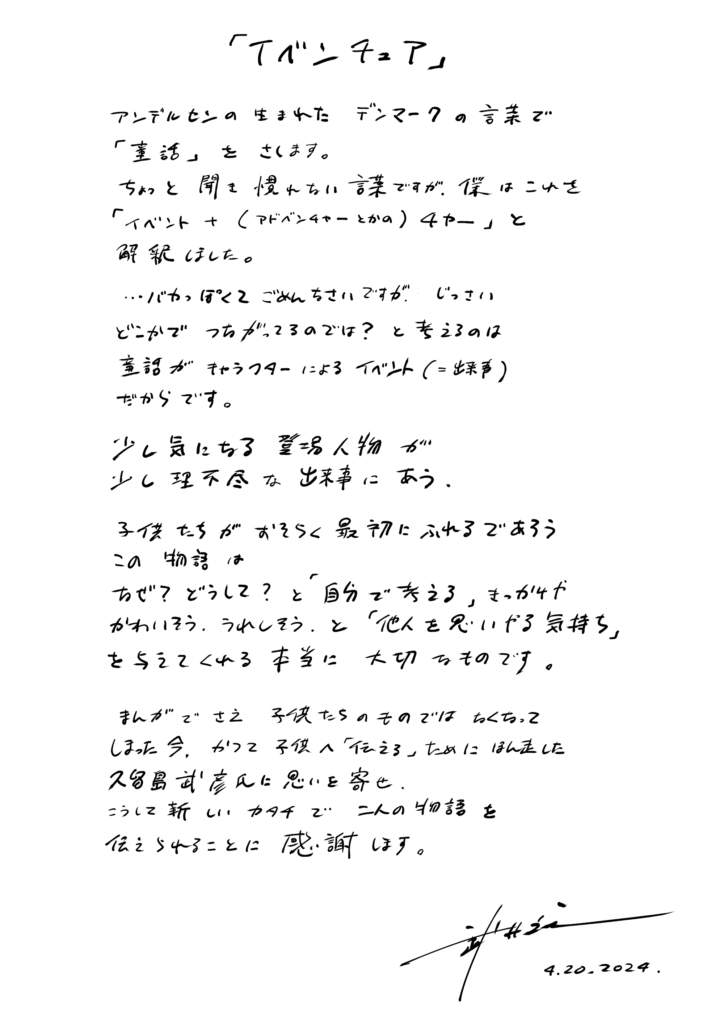 「イベンチュア」
アンデルセンの生まれた デンマークの言葉で
「童話」を さします。
ちょっと 聞き慣れない言葉ですが、僕はこれを
「イベント + (アドベンチャーとかの) チャー」と
解釈しました。
…バカっぽくて ごめんなさいですが、じっさい
どこかで つながってるのでは? と考えるのは
童話が キャラクターによる イベント (=出来事)
だからです。
少し気になる 登場人物が
少し理不尽な 出来事に あう。
子供たちが おそらく 最初に ふれるであろう
この 物語は
なぜ? どうして? と「自分で考える」きっかけや
かわいそう、うれしそう、と「他人を思いやる気持ち」
を与えてくれる 本当に 大切なものです。
まんがでさえ 子供たちのものでは なくなって
しまった今、かつて 子供へ「伝える」ために ほん走した
久留島 武彦氏に思いを寄せ、
こうして新しいカタチで 二人の物語を
伝えられることに 感謝します。
武井宏之
4.20.2024.